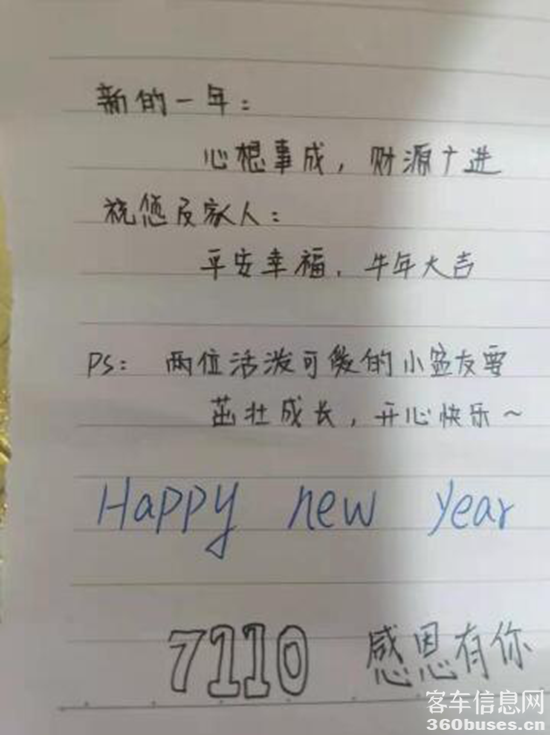 新的一年：
心想事成，财源广进
祝您及家人：
平安幸福，牛年大吉
PS：两位活泼可爱的小盆友要
茁壮成长，开心快乐～
Happy new year
7110 感恩有你
客车信息网
360buses.cn